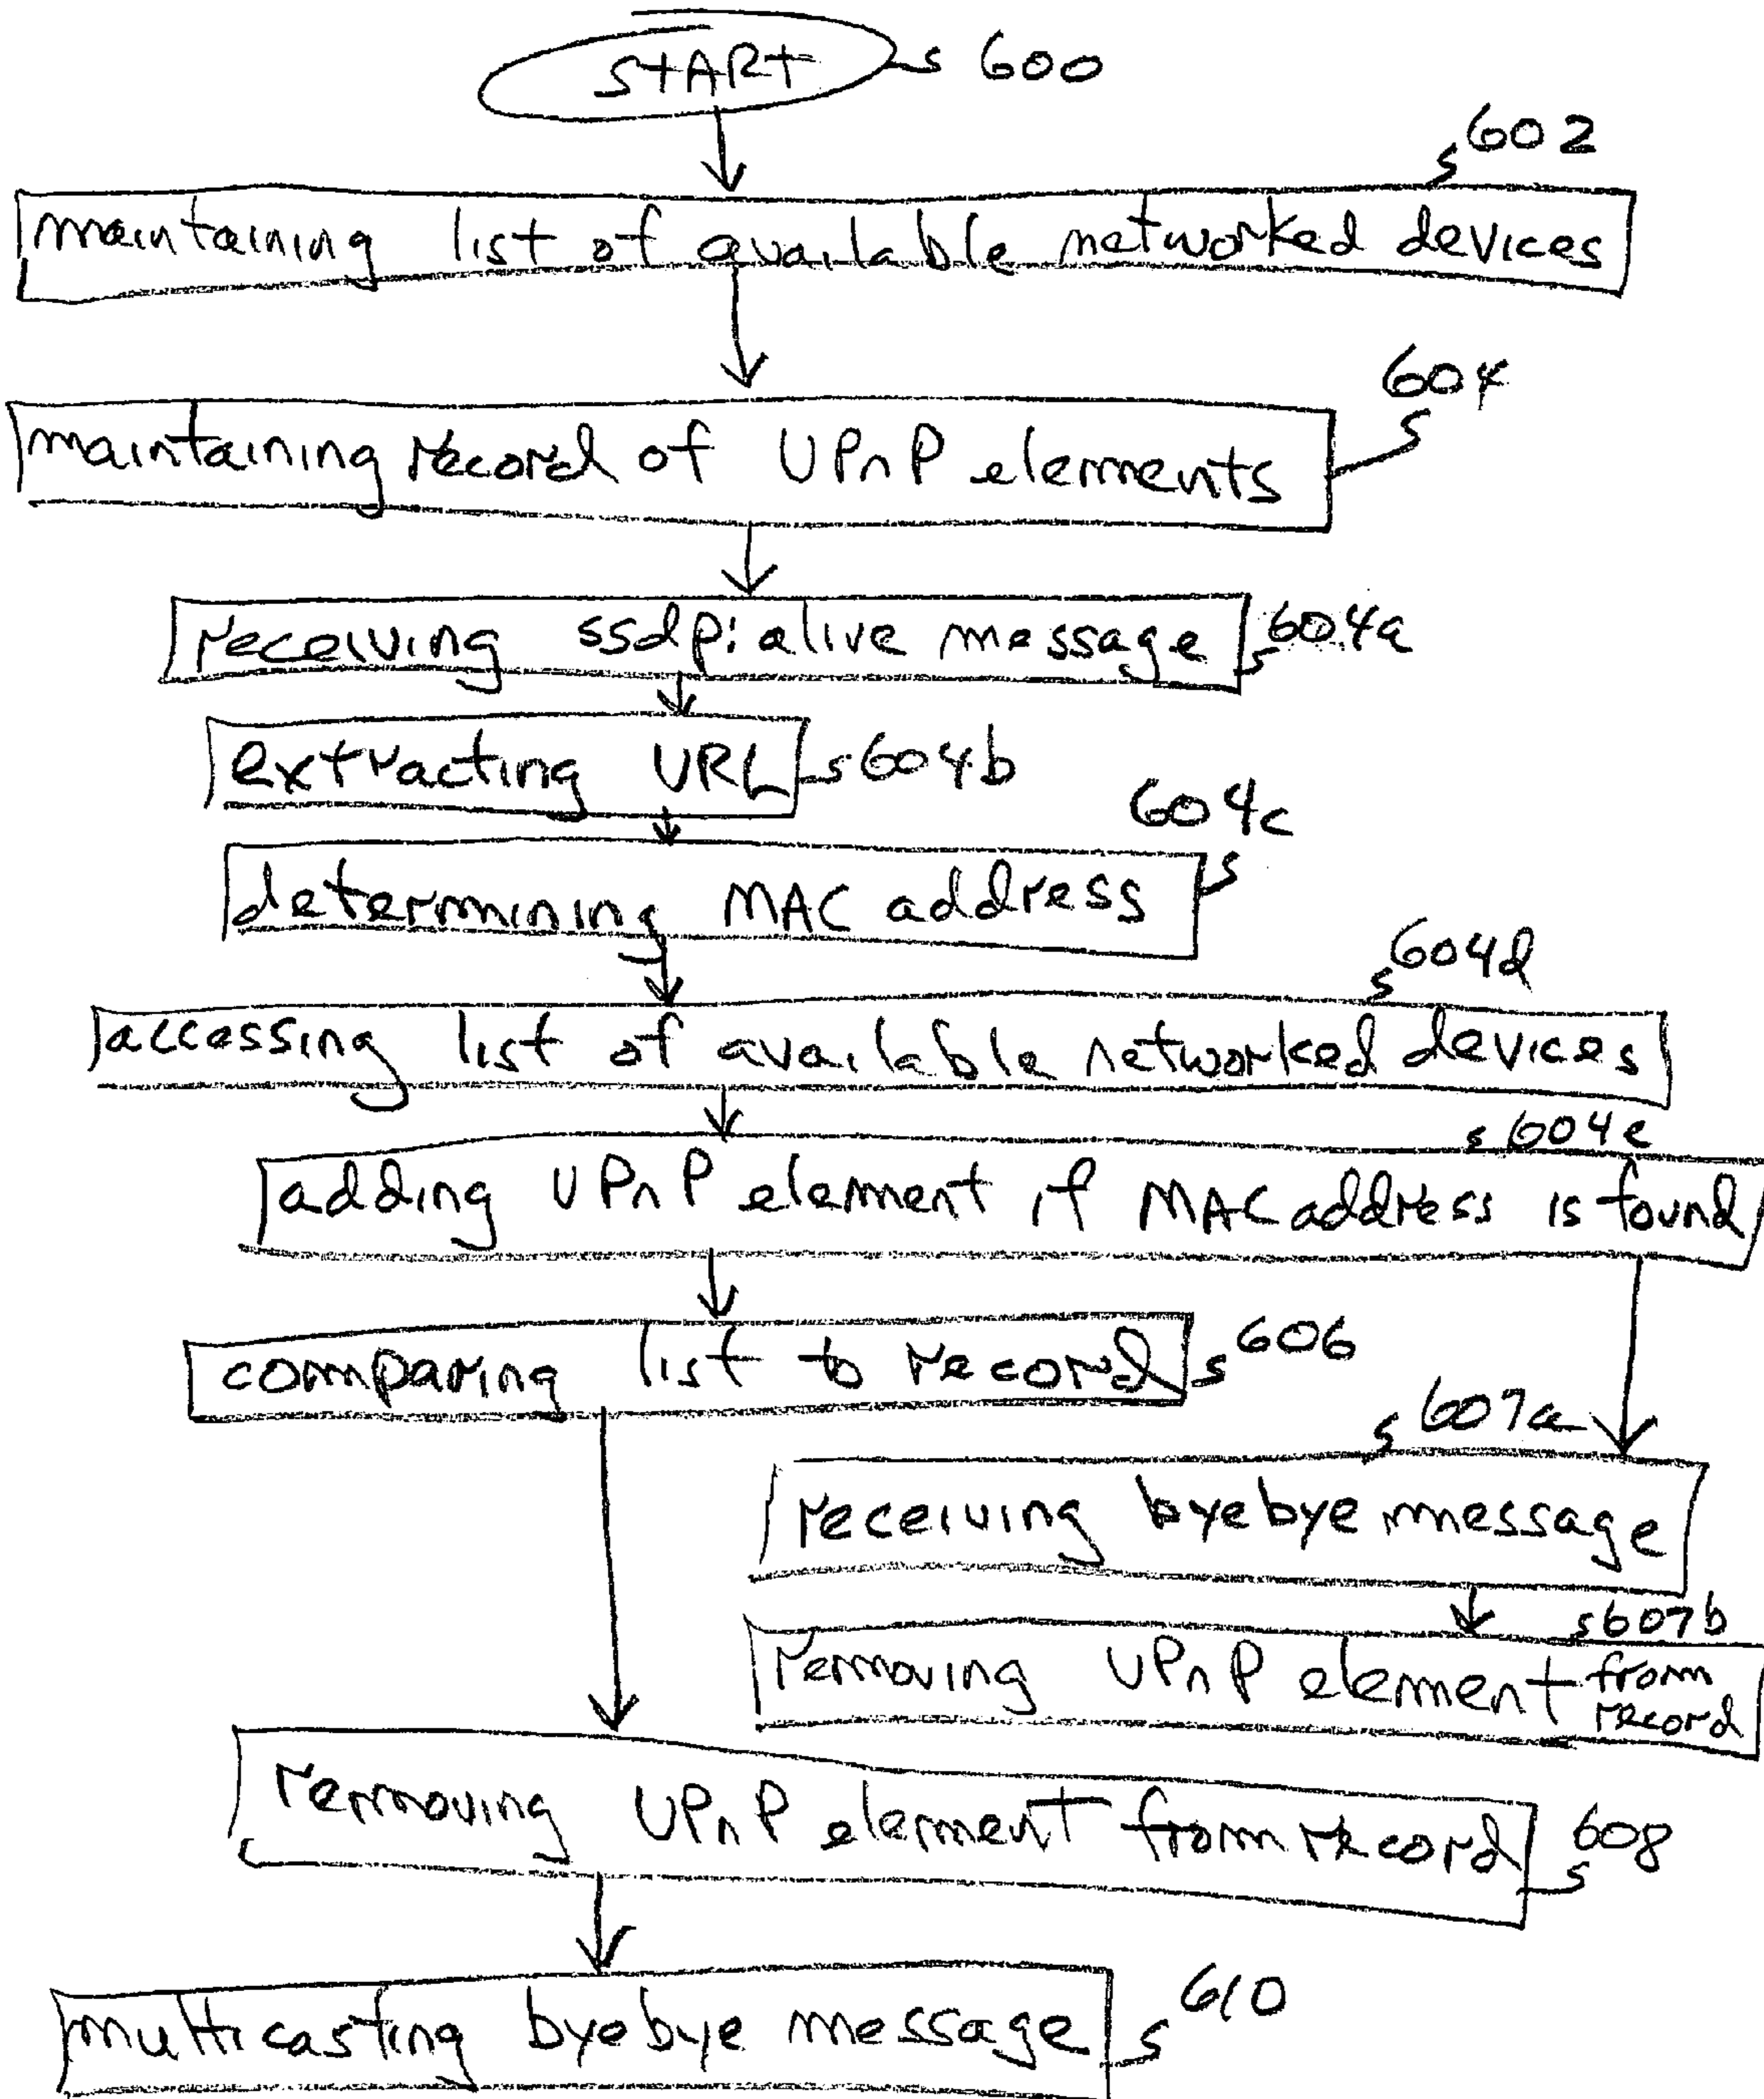 START 600
602
maintaining list of available networked devices
604
maintaining record of UPnP elements
receiving ssdp:alive message 604a
extracting URL 604b
604c
determining MAC address
604d
accessing list of available networked devices
604e
adding UPnP element if MAC address is found
comparing list to record 606
607a
receiving byebye message
607b
removing UPnP element from
record
removing UPnP element from record 608
multicasting byebye message 610